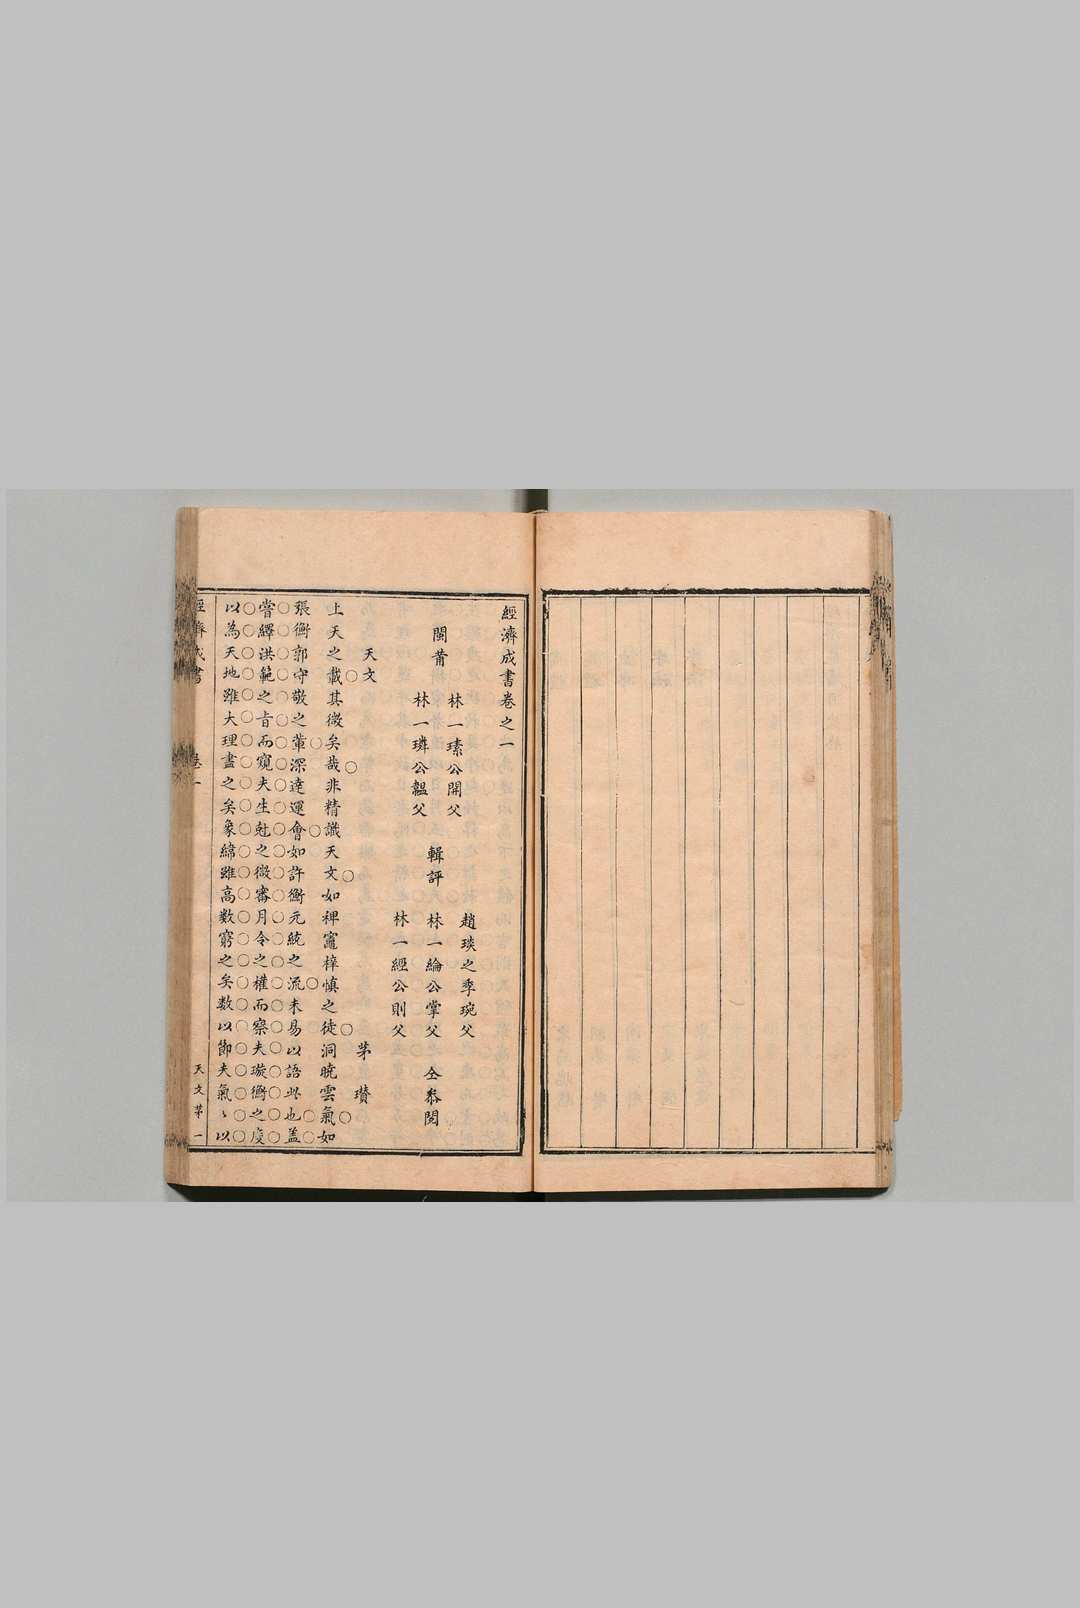 經濟成書卷之一
趙琰之季琬父
閩莆
林一㻉公開父
輯評
林一綸公掌父
仝叅閱
林一璘公韞父
林一經公則父
天文
茅瓚
上天之載其微矣哉非精識天文如裨竈梓慎之徒洞曉雲氣如
張衡郭守敬之輩深達運會如許衡元統之流未易以語此也盖
嘗繹洪範之旨而窺夫生尅之微審月令之權而察夫璇衡之度
以為天地雖大理盡之矣象緯雖高數窮之矣數以節夫氣〻以
經濟成書
卷一
天文茅一